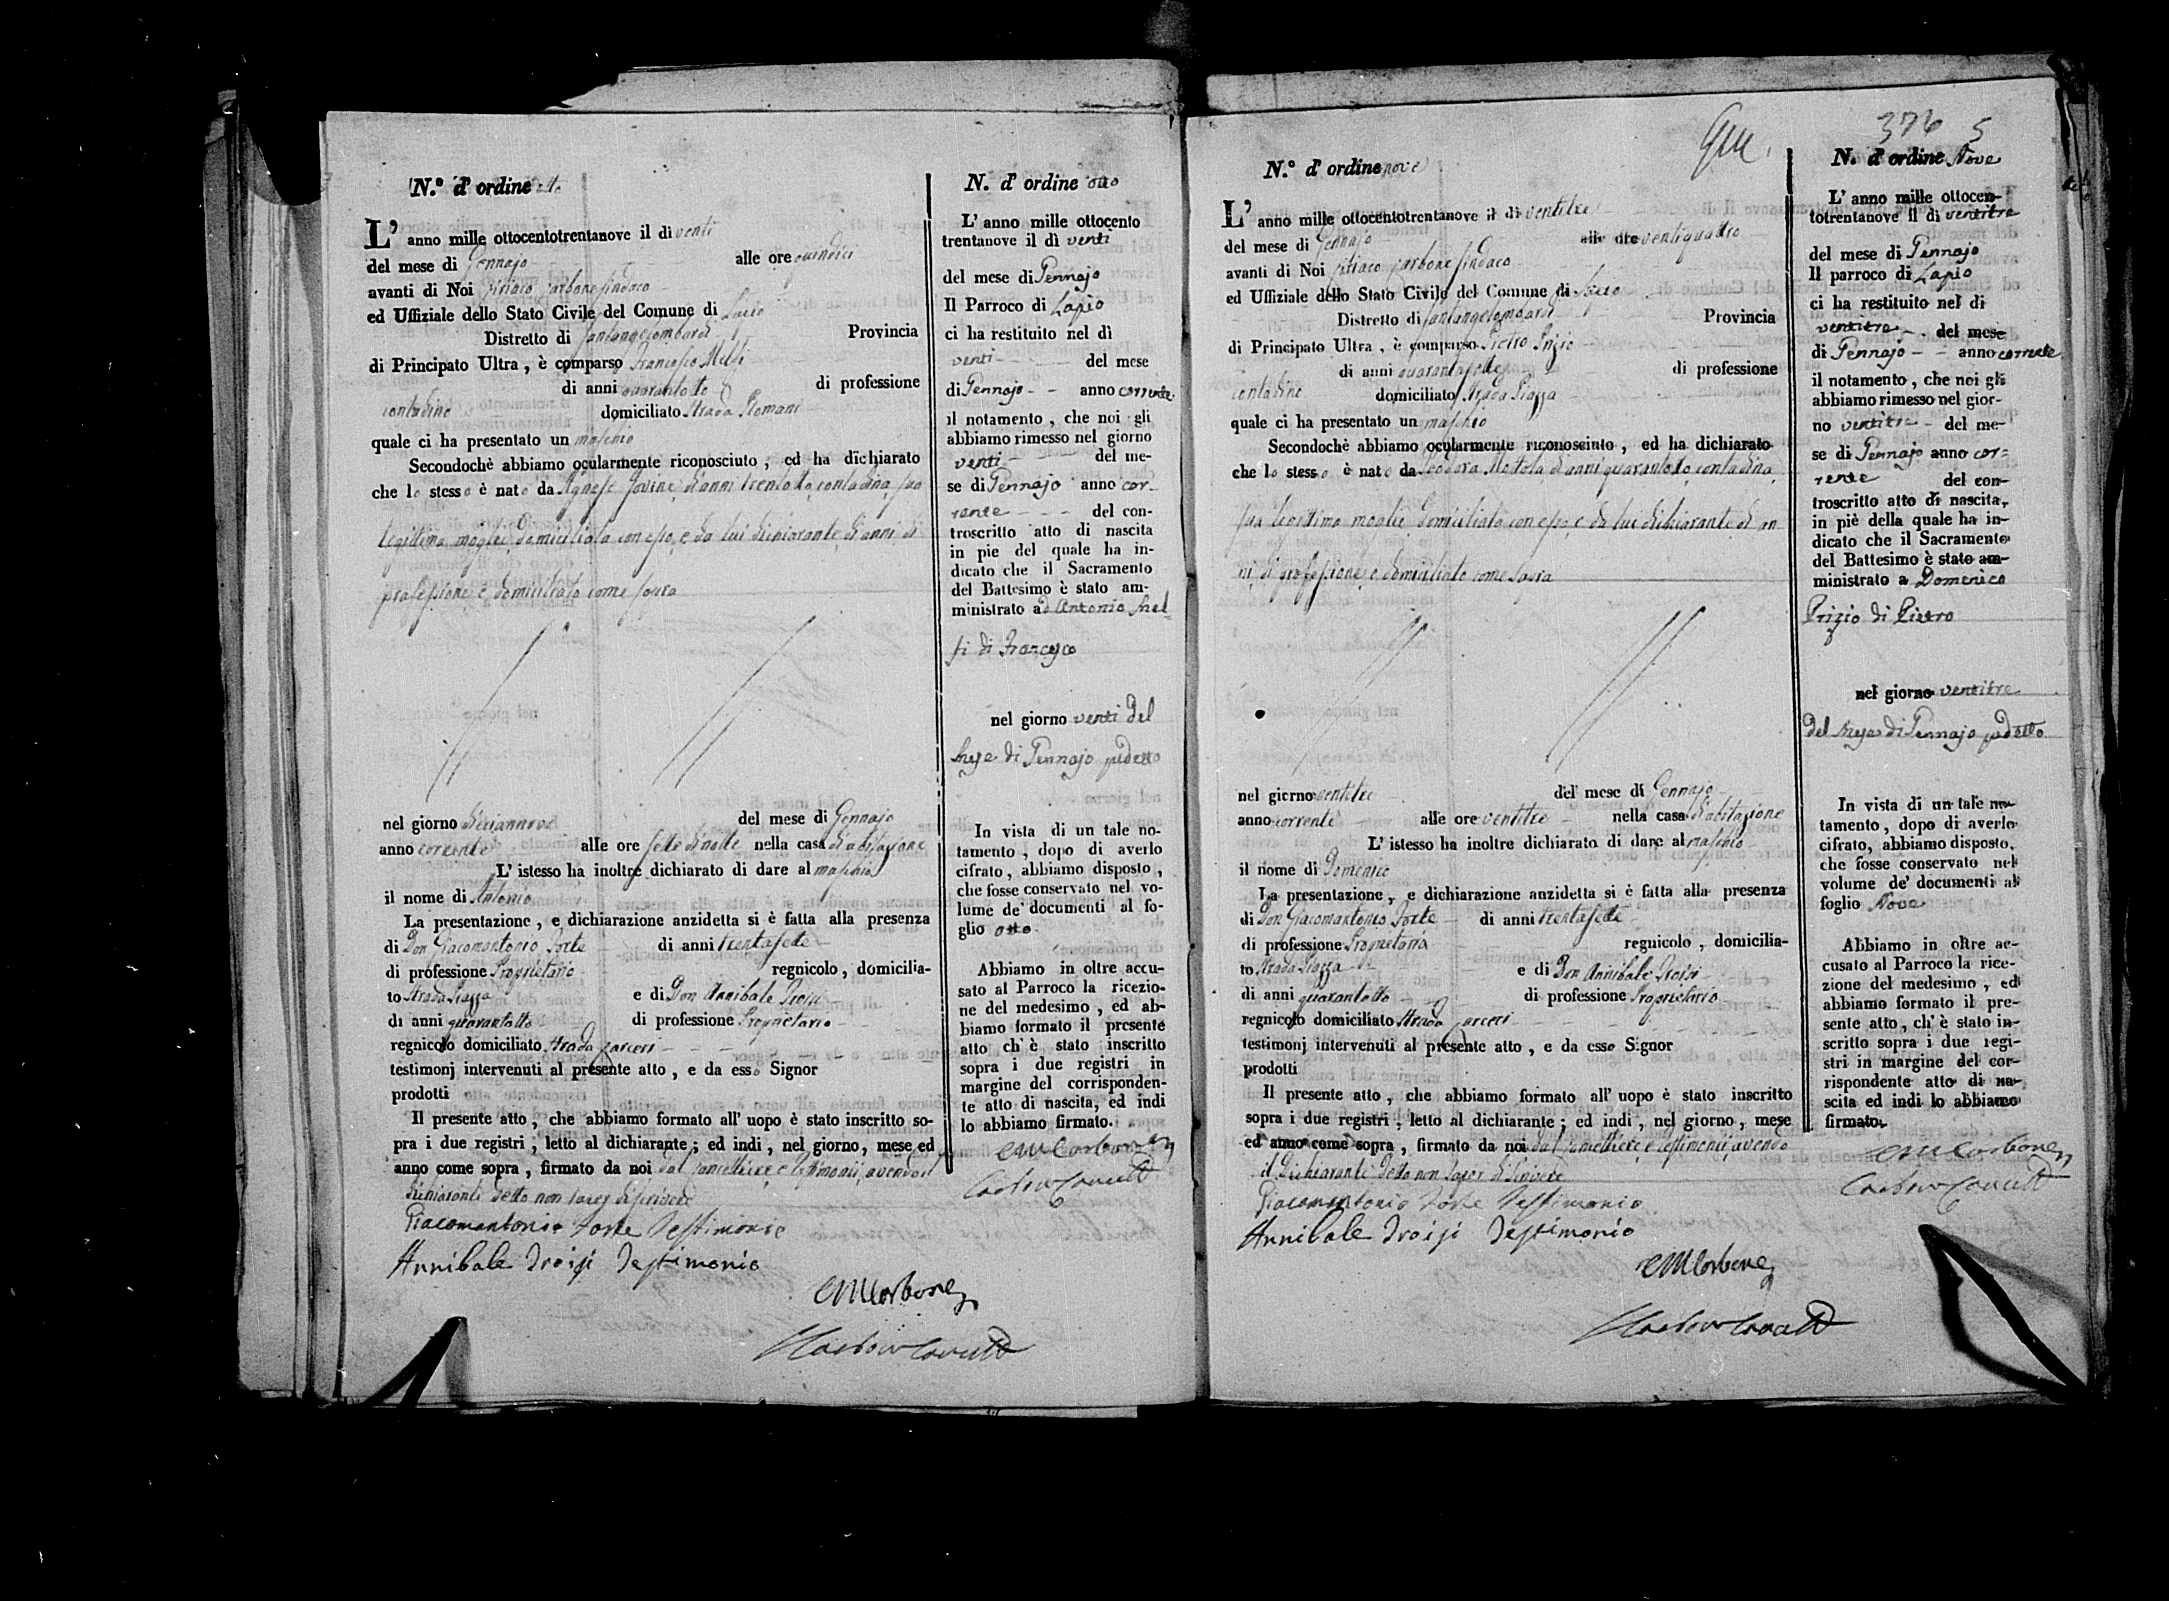 N.º d' ordine otto
L' anno mille ottocentotrentanove il dì venti
del mese di Gennajo alle ore quindici
avanti di Noi Ciriaco Carbone Sindaco
ed Uffiziale dello Stato Civile del Comune di Lapio
Distretto di Santangelombardi Provincia
di Principato Ultra, è comparso Francesco Melfi
di anni quarantotto di professione
contadino domiciliato Strada Romani
quale ci ha presentato un maschio
Secondochè abbiamo ocularmente riconosciuto, ed ha dichiarato
che lo stesso è nato da Agnese Jovine d'anni trentotto contadina, sua
legittima moglie, domiciliata con esso, e da lui dichiarante di anni di
professione e domiciliato come sopra
nel giorno diciannove del mese di Gennajo
anno corrente alle ore sette di notte nella casa di abitazione
L' istesso ha inoltre dichiarato di dare al maschio
il nome di Antonio
La presentazione, e dichiarazione anzidetta si è fatta alla presenza
di Don Giacomantonio Forte di anni trentasette
di professione Proprietario regnicolo, domicilia-
to Strada Piazza e di Don Annibale Troisi
di anni quarantotto di professione Proprietario
regnicolo domiciliato Strada Carceri
testimonj intervenuti al presente atto, e da esso Signor
prodotti
Il presente atto, che abbiamo formato all' uopo è stato inscritto so-
pra i due registri, letto al dichiarante; ed indi, nel giorno, mese ed
anno come sopra, firmato da noi dal Cancelliere, e testimonii, avendo il
dichiarante detto non saper di scrivere
Giacomantonio Forte Testimonio
Annibale Troisi Testimonio
Carbone
N. d' ordine otto
L' anno mille ottocento
trentanove il dì venti
del mese di Gennajo
Il Parroco di Lapio
ci ha restituito nel dì
venti del mese
di Gennajo anno corrente
il notamento, che noi gli
abbiamo rimesso nel giorno
venti del me-
se di Gennajo anno cor-
rente del con-
troscritto atto di nascita
in pie del quale ha in-
dicato che il Sacramento
del Battesimo è stato am-
ministrato ad Antonio Mel
fi di Francesco
nel giorno venti del
Mese di Gennajo pdetto
In vista di un tale no-
tamento, dopo di averlo
cifrato, abbiamo disposto,
che fosse conservato nel vo-
lume de' documenti al fo-
glio otto
Abbiamo in oltre accu-
sato al Parroco la ricezio-
ne del medesimo, ed ab-
biamo formato il presente
atto ch' è stato inscritto
sopra i due registri in
margine del corrisponden-
te atto di nascita, ed indi
lo abbiamo firmato.
Carbone
376 5
N.º d' ordine nove
L' anno mille ottocentotrentanove il dì ventitre
del mese di Gennajo alle ore ventiquattro
avanti di Noi Ciriaco Carbone Sindaco
ed Uffiziale dello Stato Civile del Comune di Lapio
Distretto di Santangelombardi Provincia
di Principato Ultra, è comparso Pietro Prizio
di anni quarantasette di professione
contadino domiciliato Strada Piazza
quale ci ha presentato un maschio
Secondochè abbiamo ocularmente riconosciuto, ed ha dichiarato
che lo stesso è nato da Teodora Mottola d'anni quarantotto contadina
sua legittima moglie domiciliata con esso, e da lui dichiarante di an
ni, di professione, e domiciliato come sopra
nel giorno ventitre del mese di Gennajo
anno corrente alle ore ventitre nella casa di abitazione
L' istesso ha inoltre dichiarato di dare al maschio
il nome di Domenico
La presentazione, e dichiarazione anzidetta si è fatta alla presenza
di Don Giacomantonio Forte di anni trentasette
di professione Proprietario regnicolo, domicilia-
to Strada Piazza e di Don Annibale Troisi
di anni quarantotto di professione Proprietario
regnicolo domiciliato Strada Carceri
testimonj intervenuti al presente atto, e da esso Signor
prodotti
Il presente atto, che abbiamo formato all' uopo è stato inscritto
sopra i due registri, letto al dichiarante; ed indi, nel giorno, mese
ed anno come sopra, firmato da noi dal Cancelliere, e testimonii, avendo
il dichiarante detto non saper di scrivere
Giacomantonio Forte Testimonio
Annibale Troisi Testimonio
Carbone
N. d' ordine Nove
L' anno mille ottocen-
totrentanove il dì ventitre
del mese di Gennajo
Il parroco di Lapio
ci ha restituito nel dì
ventitre del mese
di Gennajo anno corrente
il notamento, che noi gli
abbiamo rimesso nel gior-
no ventitre del me-
se di Gennajo anno cor-
rente del con-
troscritto atto di nascita,
in piè della quale ha in-
dicato che il Sacramento
del Battesimo è stato am-
ministrato a Domenico
Prizio di Pietro
nel giorno ventitre
del Mese di Gennajo pdetto
In vista di un tale no-
tamento, dopo di averlo
cifrato, abbiamo disposto,
che fosse conservato nel
volume de' documenti al
foglio Nove
Abbiamo in oltre ac-
cusato al Parroco la rice-
zione del medesimo, ed
abbiamo formato il pre-
sente atto, ch' è stato in-
scritto sopra i due regi-
stri in margine del cor-
rispondente atto di na-
scita ed indi lo abbiamo
firmato.
Carbone